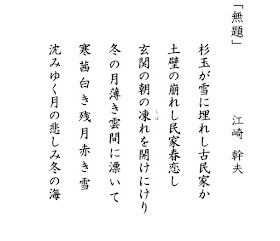 「無題」
江崎 幹夫
杉玉が雪に埋れし古民家か
土壁の崩れし民家春恋し
玄関の朝の凍れを開けにけり
冬の月薄き雲間に漂いて
寒茜白き残月赤き雪
沈みゆく月の悲しみ冬の海